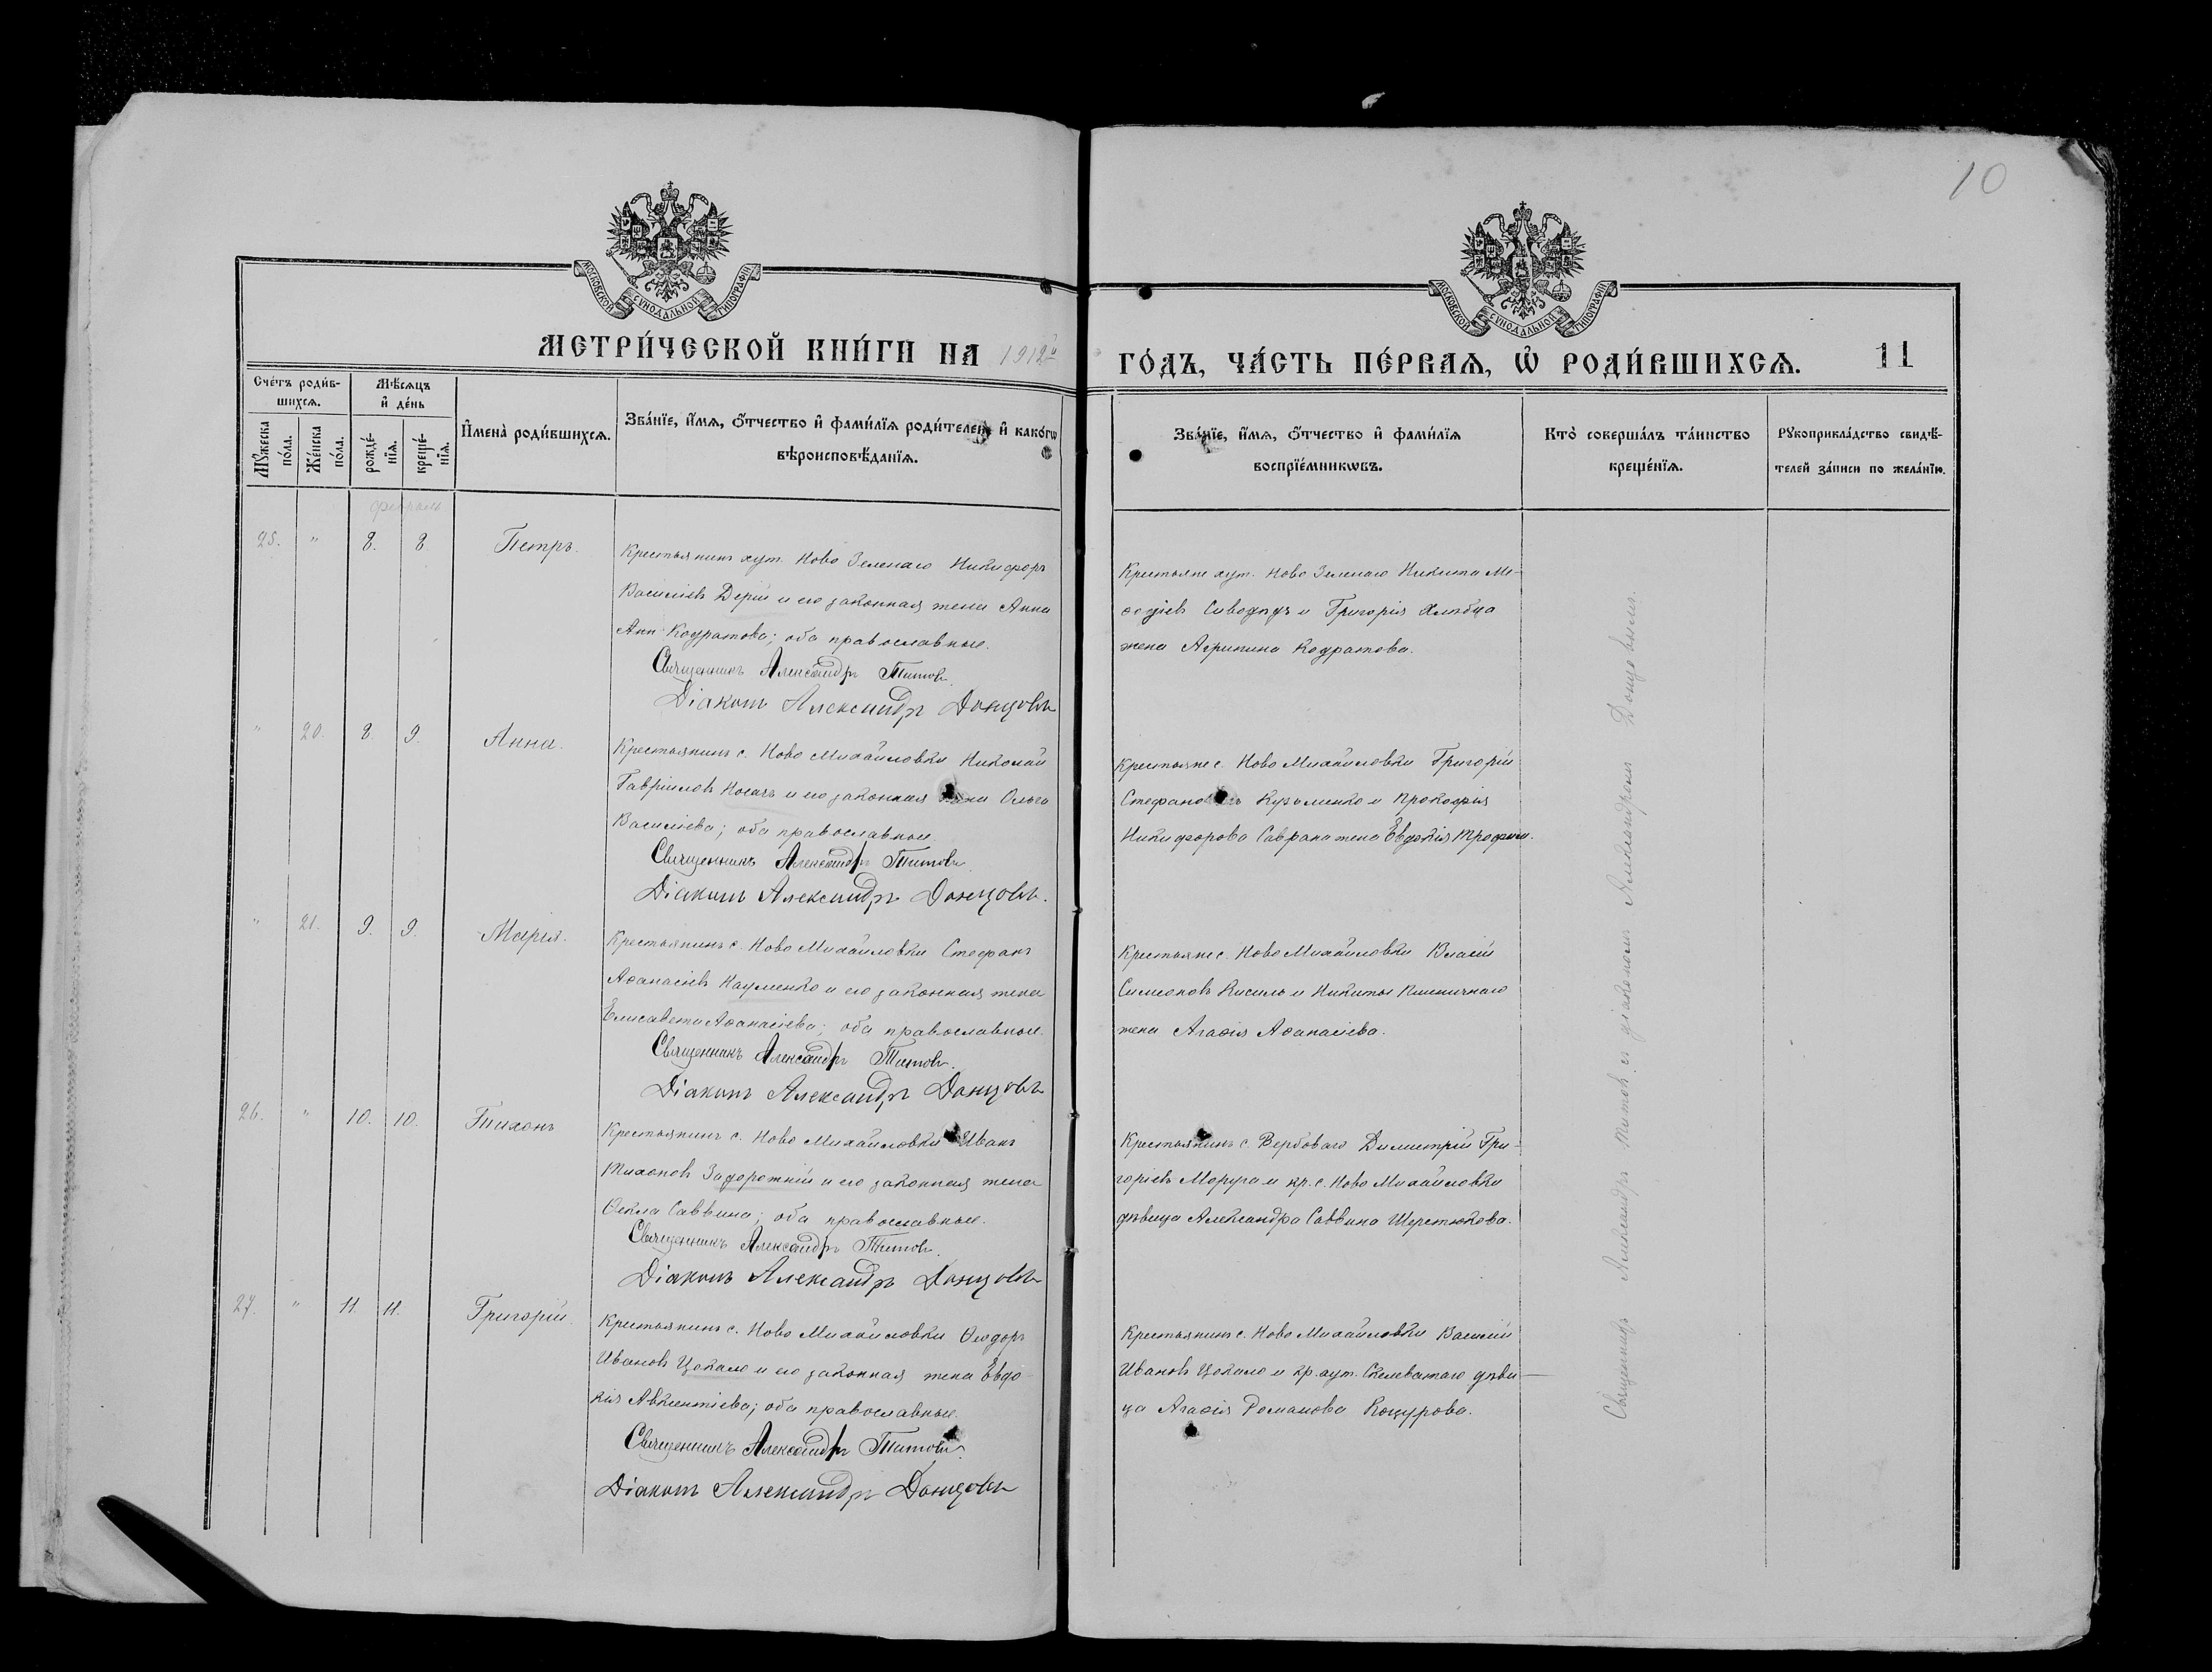 10
МОСКОВСКОЙ СУНОДАЛЬНОЙ ТИПОГРАФІИ
МОСКОВСКОЙ СУНОДАЛЬНОЙ ТИПОГРАФІИ
МЕТРИ́ЧЕСКОЙ КНИ́ГИ НА 1912й ГО́ДЪ, ЧА́СТЬ ПЕ́РВАѦ, Ѡ҆ РОДИ́ВШИХСѦ. 11
Сче́тъ роди́в-
шихсѧ.
Мѣ́сѧцъ
и҆ де́нь
Мꙋ́жеска
по́ла.
Же́нска
по́ла.
рожде́-
нїѧ.
креще́-
нїѧ.
И҆мена̀ роди́вшихсѧ.
Зва́нїе, и҆́мѧ, ѻ҆́тчество и҆ фами́лїѧ роди́телей и҆ како́гѡ
вѣроисповѣ́данїѧ.
Зва́нїе, и҆́мѧ, ѻ҆́тчество и҆ фами́лїѧ
воспрїе́мникѡвъ.
Кто̀ соверша́лъ та́инство
креще́нїѧ.
Рꙋкоприкла́дство свидѣ́-
телей за́писи по жела́нїю.
февраль
25. " 8. 8 Петръ.
Крестьянинъ хут. Ново Зеленаго Никифоръ
Василіевъ Дерій и его законная жена Анна
Кодратова; оба православные.
Священникъ Александръ Титовъ.
Діаконъ Александръ Донцовъ
Крестьяне хут. Ново Зеленаго Никита Ме-
ѳодіевъ и Григорія Хлѣбца
жена Агрипина Кодратова.
" 20. 8. 9. Анна.
Крестьянинъ с. Ново Михайловки Николай
Гавріиловъ Носачъ и его законная жена Ольга
Василіева; оба православные.
Священникъ Александръ Титовъ.
Діаконъ Александръ Донцовъ.
Крестьяне с. Ново Михайловки Григорій
Кузьменко и Прокофія
Никифорова Саврана жена Евдокія Трофим.
" 21. 9. 9. Марія.
Крестьянинъ с. Ново Михайловки Стефанъ
Аѳанасіевъ Науменко и его законная жена
Елисавета Аѳанасіева; оба православные.
Священникъ Александръ Титовъ.
Діаконъ Александръ Донцовъ
Крестьяне с. Ново Михайловки Власій
Симеоновъ Кисиль и Никиты Пшеничнаго
жена Агаѳія Аѳанасіева.
26. " 10. 10. Тихонъ
Крестьянинъ с. Ново Михайловки Иванъ
Тихоновъ Задорожній и его законная жена
Ѳекла Саввина; оба православные.
Священникъ Александръ Титовъ.
Діаконъ Александръ Донцовъ
Крестьянинъ с. Вербоваго Димитрій Гри-
горіевъ Моруга и кр. с. Ново Михайловки
дѣвица Александра Саввина Шеретюкова.
27. " 11. 11. Григорій.
Крестьянинъ с. Ново Михайловки Ѳеодоръ
Ивановъ Цокало и его законная жена Евдо-
кія Авксентіева; оба православные.
Священникъ Александръ Титовъ.
Діаконъ Александръ Донцовъ
Крестьянинъ с. Ново Михайловки Василій
Ивановъ Цокало и кр. хут. Скелеватаго дѣви-
ца Агаѳія Романова Коцурова.
Священникъ Александръ Титовъ съ діакономъ Александромъ Донцовымъ.